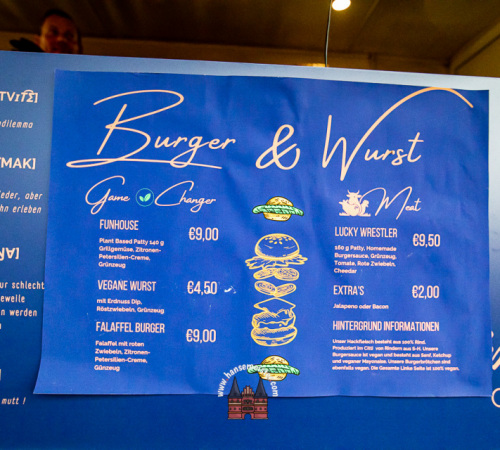 TVITÉ]
dilemma
TMAK]
ieder, aber
hn erleben
ur schlecht
ewelle
n werden
mutt !
Burger & Wurst
Game Changer
FUNHOUSE €9,00
Plant Based Patty 140 g
Grillgemüse, Zitronen-
Petersilien-Creme,
Grünzeug
VEGANE WURST €4,50
mit Erdnuss Dip,
Röstzwiebeln, Grünzeug
FALAFFEL BURGER €9,00
Falaffel mit roten
Zwiebeln, Zitronen-
Petersilien-Creme,
Grünzeug
Meat
LUCKY WRESTLER €9,50
160 g Patty, Homemade
Burgersauce, Grünzeug,
Tomate, Rote Zwiebeln,
Cheedar
EXTRA'S €2,00
Jalapeno oder Bacon
HINTERGRUND INFORMATIONEN
Unser Hackfleisch besteht aus 100% Rind.
Produziert im CRE von Rindern aus S-H. Unsere
Burgersauce ist vegan und besteht aus Senf, Ketchup
und veganer Mayonaise. Unsere Burgerbrötchen sind
ebenfalls vegan. Die Gesamte Linke Seite ist 100% vegan.